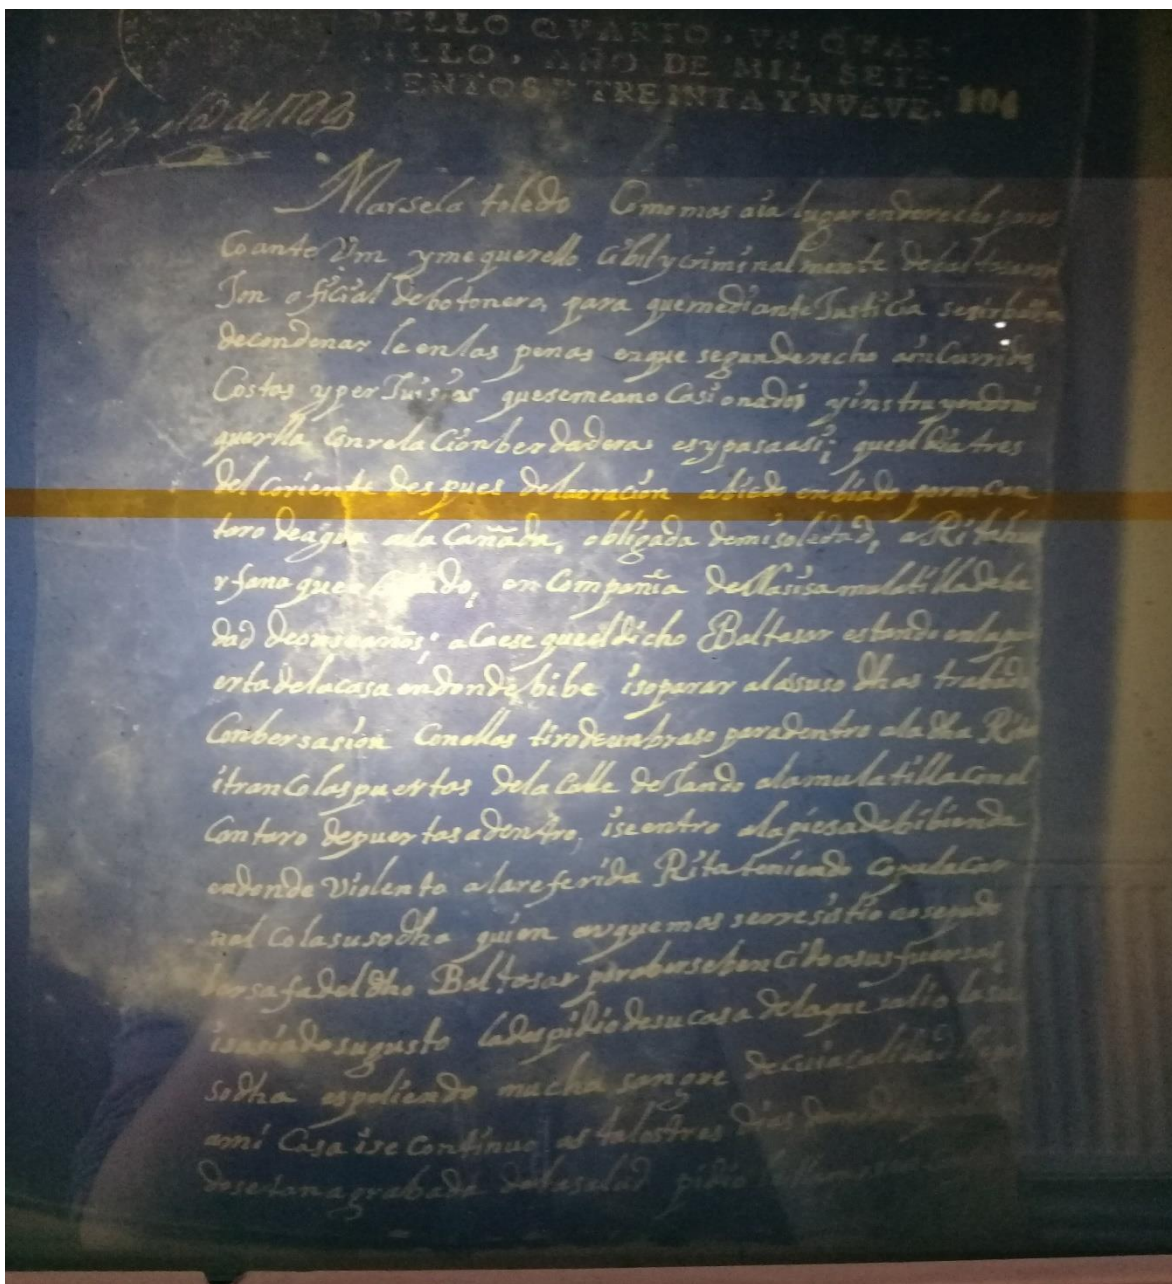 SELLO QVARTO, VN QVAR-
TILLO, AÑO DE MIL SETE-
CIENTOS Y TREINTA Y NVEVE. 104
Marsela toledo Como mas aia lugar en derecho pares
Co ante Vm y me querello Cibil y criminalmente de baltasar
oficial de botonero, para que mediante Justicia se sirba
de condenarle en las penas en que segun derecho a inCurrido,
Costas y perJuisios que se me an oCasionados y instruyendo mi
querlla Con relaCion berdadera es y pasa asi; que el dia tres
del coriente despues de la oracion abiedo enbiado por un Can
taro de agua a la Cañada, obligada de mi soledad, a Rita hu
rfana que e en Compañia de Nasisa mulatilla de he
dad de años; aCaese que el dicho Baltasar estando en la pu
erta de la casa en donde bibe iso parar a las suso dhas trabado
Conbersasion Con ellas tiro de un braso para dentro a la dha Rita
i tranCo las puertas de la Calle deJando a la mulatilla Con el
Cantaro de puertas adentro, i se entro a la piesa de bibienda
en donde Violento a la referida Rita teniendo Copula Car
nal Co la suso dha quien aunque mas se resistio no se pudo
safa del dho Baltasar por aberse bencido a sus fuersas,
i sasiado su gusto la despidio de su casa de la que salio la su
so dha espeliendo mucha sangre de cuia calidad
a mi Casa i se continuo asta los tres dias
dose tan agrabada de la salud pidio